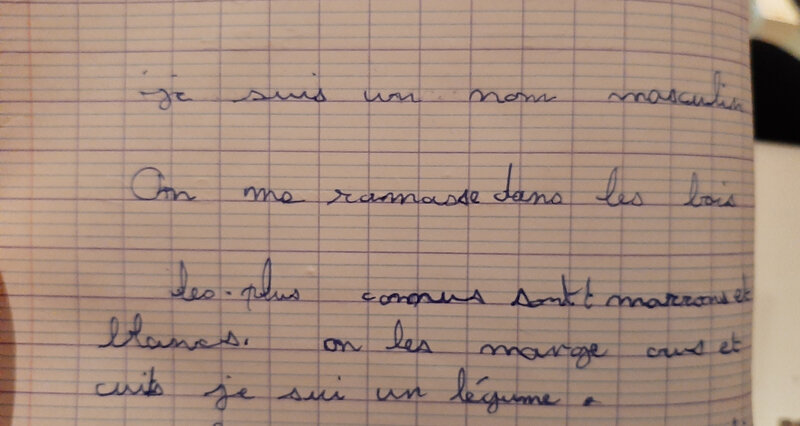 je suis un nom masculin
On me ramasse dans les bois
les plus connus sont marrons et
blancs. on les mange crus et
cuits je sui un légume.